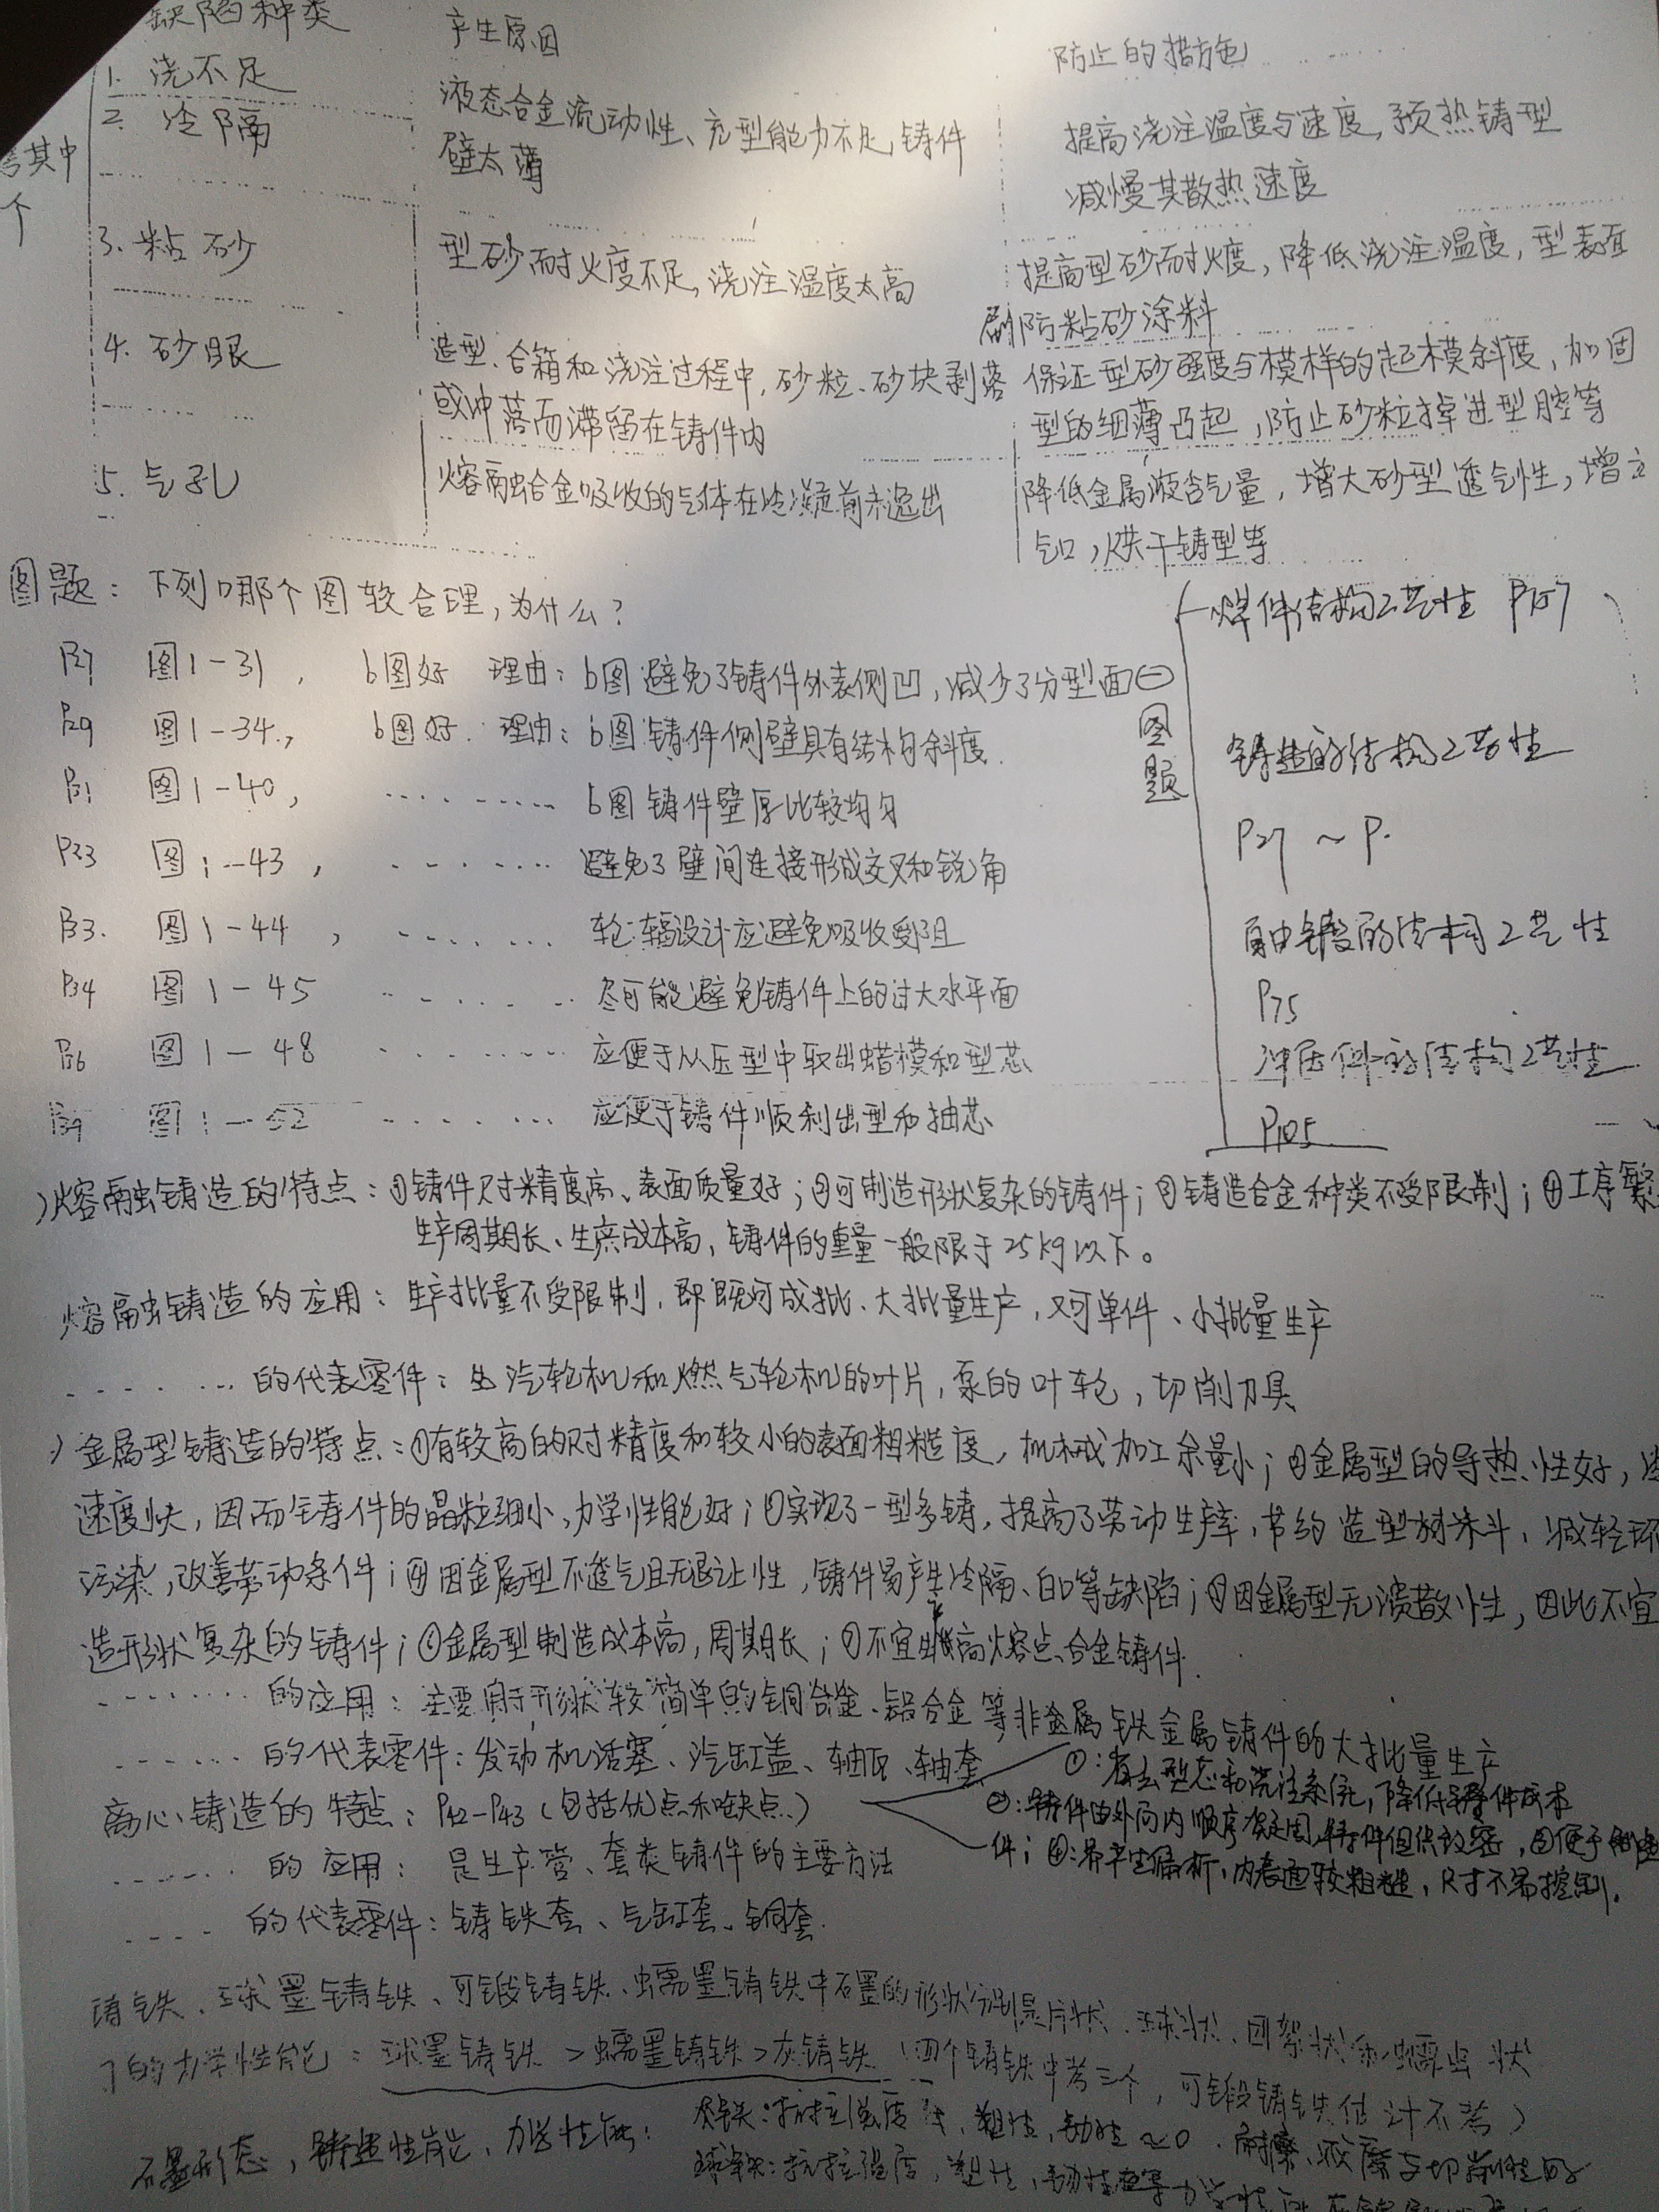 缺陷种类 产生原因 防止的措施
1. 浇不足
2. 冷隔 液态合金流动性、充型能力不足,铸件 提高浇注温度与速度,预热铸型
考其中 壁太薄 减慢其散热速度
个
3. 粘砂 型砂耐火度不足,浇注温度太高 提高型砂耐火度,降低浇注温度,型表面
刷防粘砂涂料
4. 砂眼 造型、合箱和浇注过程中,砂粒、砂块剥落 保证型砂强度与模样的起模斜度,加固
或冲落而滞留在铸件内 型的细薄凸起,防止砂粒掉进型腔等
5. 气孔 熔融合金吸收的气体在冷凝前未逸出 降低金属液含气量,增大砂型透气性,增
气口,烘干铸型等
图题:下列哪个图较合理,为什么?
P27 图1-31, b图好 理由:b图避免了铸件外表侧凹,减少了分型面
P29 图1-34, b图好 理由:b图铸件侧壁具有结构斜度.
P31 图1-40, ………… b图铸件壁厚比较均匀
P33 图1-43, ………… 避免了壁间连接形成交叉和锐角
P33. 图1-44, ………… 轮辐设计应避免吸收受阻
P34 图1-45 ………… 尽可能避免铸件上的过大水平面
P36 图1-48 ………… 应便于从压型中取出蜡模和型芯
P39 图1-52 ………… 应便于铸件顺利出型和抽芯
图题
焊件结构工艺性 P157
铸造的结构工艺性
P27 ~ P.
自由锻的结构工艺性
P75
冲压件的结构工艺性
P105
)熔融铸造的特点:①铸件尺寸精度高、表面质量好;②可制造形状复杂的铸件;③铸造合金种类不受限制;④工序繁
生产周期长、生产成本高,铸件的重量一般限于25kg以下。
熔融铸造的应用:生产批量不受限制,即既可成批、大批量生产,又可单件、小批量生产
………的代表零件:汽轮机和燃气轮机的叶片,泵的叶轮,切削刀具
)金属型铸造的特点:①有较高的尺寸精度和较小的表面粗糙度,机械加工余量小;②金属型的导热性好,冷
速度快,因而铸件的晶粒细小,力学性能好;③实现了一型多铸,提高了劳动生产率,节约造型材料,减轻环
污染,改善劳动条件;④因金属型不透气且无退让性,铸件易产生冷隔、白口等缺陷;⑤因金属型无溃散性,因此不宜
造形状复杂的铸件;⑥金属型制造成本高,周期长;⑦不宜生产高熔点合金铸件.
………的应用:主要用于形状较简单的铜合金、铝合金等非铁金属铸件的大批量生产
………的代表零件:发动机活塞、汽缸盖、轴瓦、轴套
离心铸造的特点:P42-P43(包括优点和缺点)
①:省去型芯和浇注系统,降低铸件成本
②:铸件由外向内顺序凝固,铸件组织致密,③便于
件;④:易产生偏析,内表面较粗糙,尺寸不易控制.
………的应用:是生产管、套类铸件的主要方法
………的代表零件:铸铁套、气缸套、铜套.
铸铁、球墨铸铁、可锻铸铁、蠕墨铸铁中石墨的形状分别是片状、球状、团絮状和蠕虫状
的力学性能:球墨铸铁>蠕墨铸铁>灰铸铁(四个铸铁中考三个,可锻铸铁估计不考)
石墨形态,铸造性能、力学性能:灰铸铁:抗拉强度低,塑性,韧性≈0.耐磨、减震与切削性好
球铸铁:抗拉强度,塑性,韧性等力学性能